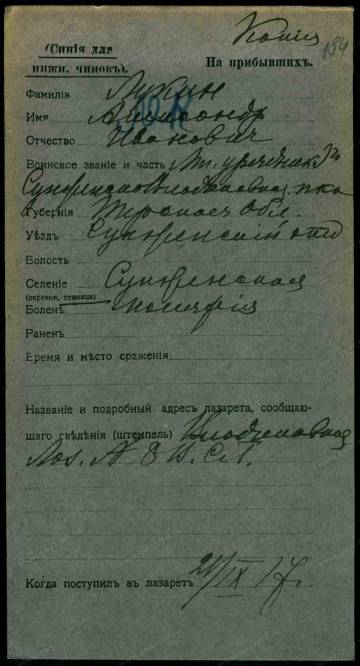 Копія
(Синія для
нижн. чиновъ).
На прибывшихъ.
184
Фамилія Лукин
Имя Александр
Отчество Иванович
Воинское званіе и часть Мл. урядник 3
Сунженско-Владикавказ. пка
Губернія Терская Обл.
Уѣздъ Сунженскій отд
Волость
Селеніе Сунженская
(деревня, станица)
Боленъ малярія
Раненъ
Время и мѣсто сраженія
Названіе и подробный адресъ лазарета, сообщаю-
щаго свѣдѣнія (штемпель) Владикавказ
Лаз. № 8 В. С.
Когда поступилъ въ лазаретъ 21/IX 17 г.